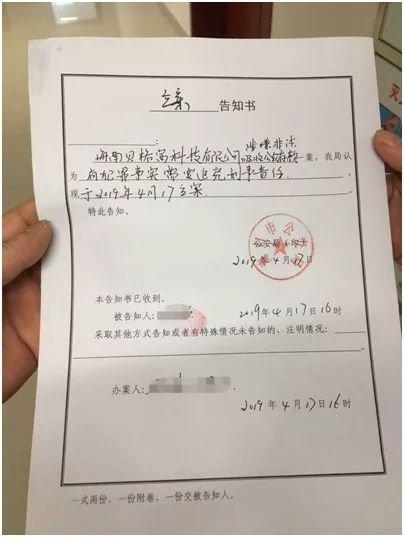 立案 告知书
涉嫌非法
海南贝格富科技有限公司吸收公存款一案，我局认
为 有犯罪事实需要追究刑事责任
现 于2019年4月17立案
特此告知。
公安局（印）
2019年4月17日
本告知书已收到。
被告知人： 2019年4月17日16时
采取其他方式告知或者有特殊情况未告知的，注明情况：
办案人：
2019年4月17日16时
一式两份，一份附卷，一份交被告知人。